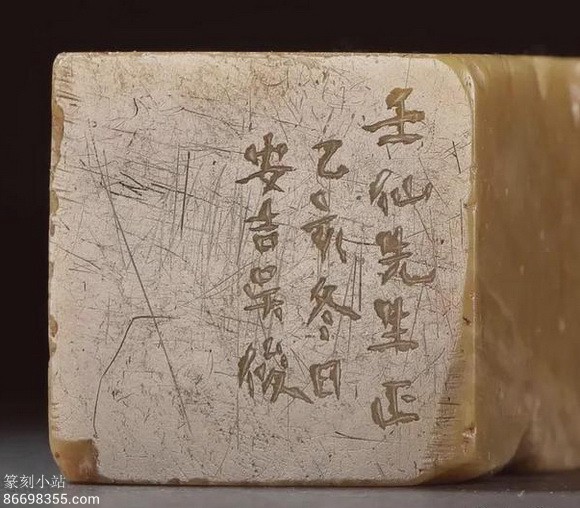 壬仙先生正
乙亥冬日
安吉吴俊
篆刻小站
86698355.com